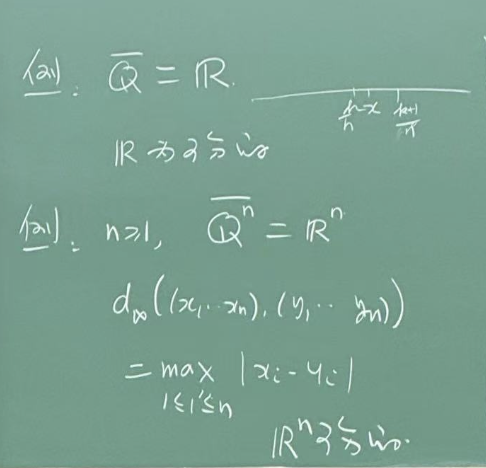 例. Q̅ = ℝ.
k/n x (k+1)/n
ℝ 为可分的
例. n≥1, \overline{ℚ^n} = ℝ^n
d_∞((x_1 … x_n), (y_1 … y_n))
= max |x_i - y_i|
1≤i≤n
ℝ^n 可分的.